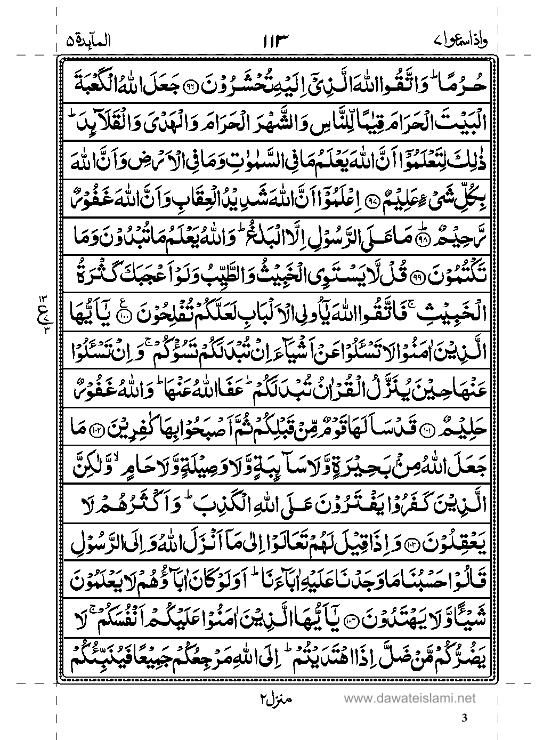 واذا سمعوا ٧
١١٣
المآئدة ٥
حُرُمًا ؕ وَ اتَّقُوا اللّٰهَ الَّذِیْۤ اِلَیْهِ تُحْشَرُوْنَ ﴿۹۶﴾ جَعَلَ اللّٰهُ الْكَعْبَةَ
الْبَیْتَ الْحَرَامَ قِیٰمًا لِّلنَّاسِ وَ الشَّهْرَ الْحَرَامَ وَ الْهَدْیَ وَ الْقَلَآىِٕدَ ؕ
ذٰلِكَ لِتَعْلَمُوْۤا اَنَّ اللّٰهَ یَعْلَمُ مَا فِی السَّمٰوٰتِ وَ مَا فِی الْاَرْضِ وَ اَنَّ اللّٰهَ
بِكُلِّ شَیْءٍ عَلِیْمٌ ﴿۹۷﴾ اِعْلَمُوْۤا اَنَّ اللّٰهَ شَدِیْدُ الْعِقَابِ وَ اَنَّ اللّٰهَ غَفُوْرٌ
رَّحِیْمٌ ﴿ؕ۹۸﴾ مَا عَلَی الرَّسُوْلِ اِلَّا الْبَلٰغُ ؕ وَ اللّٰهُ یَعْلَمُ مَا تُبْدُوْنَ وَ مَا
تَكْتُمُوْنَ ﴿۹۹﴾ قُلْ لَّا یَسْتَوِی الْخَبِیْثُ وَ الطَّیِّبُ وَ لَوْ اَعْجَبَكَ كَثْرَةُ
الْخَبِیْثِ ۚ فَاتَّقُوا اللّٰهَ یٰۤاُولِی الْاَلْبَابِ لَعَلَّكُمْ تُفْلِحُوْنَ ﴿۱۰۰﴾ یٰۤاَیُّهَا
الَّذِیْنَ اٰمَنُوْا لَا تَسْــَٔلُوْا عَنْ اَشْیَآءَ اِنْ تُبْدَ لَكُمْ تَسُؤْكُمْ ۚ وَ اِنْ تَسْــَٔلُوْا
عَنْهَا حِیْنَ یُنَزَّلُ الْقُرْاٰنُ تُبْدَ لَكُمْ ؕ عَفَا اللّٰهُ عَنْهَا ؕ وَ اللّٰهُ غَفُوْرٌ
حَلِیْمٌ ﴿۱۰۱﴾ قَدْ سَاَلَهَا قَوْمٌ مِّنْ قَبْلِكُمْ ثُمَّ اَصْبَحُوْا بِهَا كٰفِرِیْنَ ﴿۱۰۲﴾ مَا
جَعَلَ اللّٰهُ مِنْۢ بَحِیْرَةٍ وَّ لَا سَآىِٕبَةٍ وَّ لَا وَصِیْلَةٍ وَّ لَا حَامٍ ۙ وَّ لٰكِنَّ
الَّذِیْنَ كَفَرُوْا یَفْتَرُوْنَ عَلَی اللّٰهِ الْكَذِبَ ؕ وَ اَكْثَرُهُمْ لَا
یَعْقِلُوْنَ ﴿۱۰۳﴾ وَ اِذَا قِیْلَ لَهُمْ تَعَالَوْا اِلٰی مَاۤ اَنْزَلَ اللّٰهُ وَ اِلَی الرَّسُوْلِ
قَالُوْا حَسْبُنَا مَا وَجَدْنَا عَلَیْهِ اٰبَآءَنَا ؕ اَوَ لَوْ كَانَ اٰبَآؤُهُمْ لَا یَعْلَمُوْنَ
شَیْــًٔا وَّ لَا یَهْتَدُوْنَ ﴿۱۰۴﴾ یٰۤاَیُّهَا الَّذِیْنَ اٰمَنُوْا عَلَیْكُمْ اَنْفُسَكُمْ ۚ لَا
یَضُرُّكُمْ مَّنْ ضَلَّ اِذَا اهْتَدَیْتُمْ ؕ اِلَی اللّٰهِ مَرْجِعُكُمْ جَمِیْعًا فَیُنَبِّئُكُمْ
منزل ٢
www.dawateislami.net
3